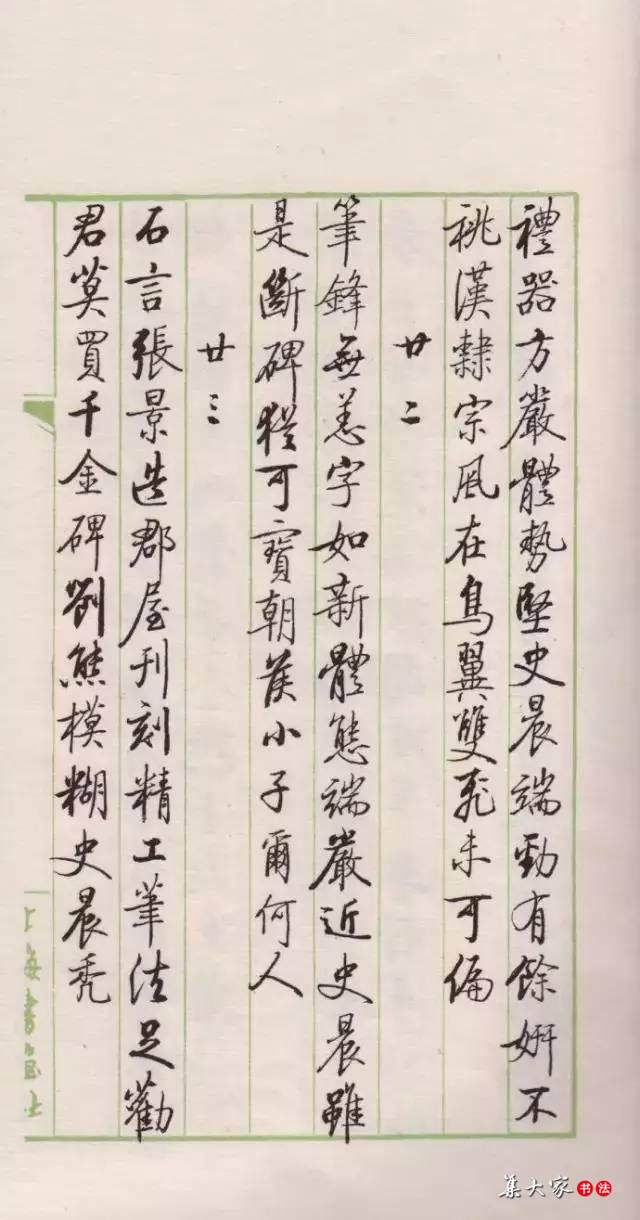 禮器方嚴體勢堅史晨端勁有餘妍不
祧漢隸宗風在鳥翼雙飛未可偏
廿二
筆鋒無恙字如新體態端嚴近史晨雖
是斷碑猶可寶朝侯小子爾何人
廿三
石言張景造郡屋刊刻精工筆法足勸
君莫買千金碑劉熊模糊史晨禿
上海書画社
集大家书法